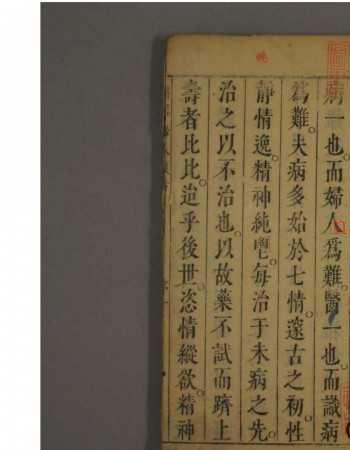 病一也而婦人爲難醫一也而識病
爲難夫病多始於七情邃古之初性
靜情逸精神純䆠每治于未病之先
治之以不治也以故藥不試而躋上
壽者比比迨乎後世恣情縱欲精神